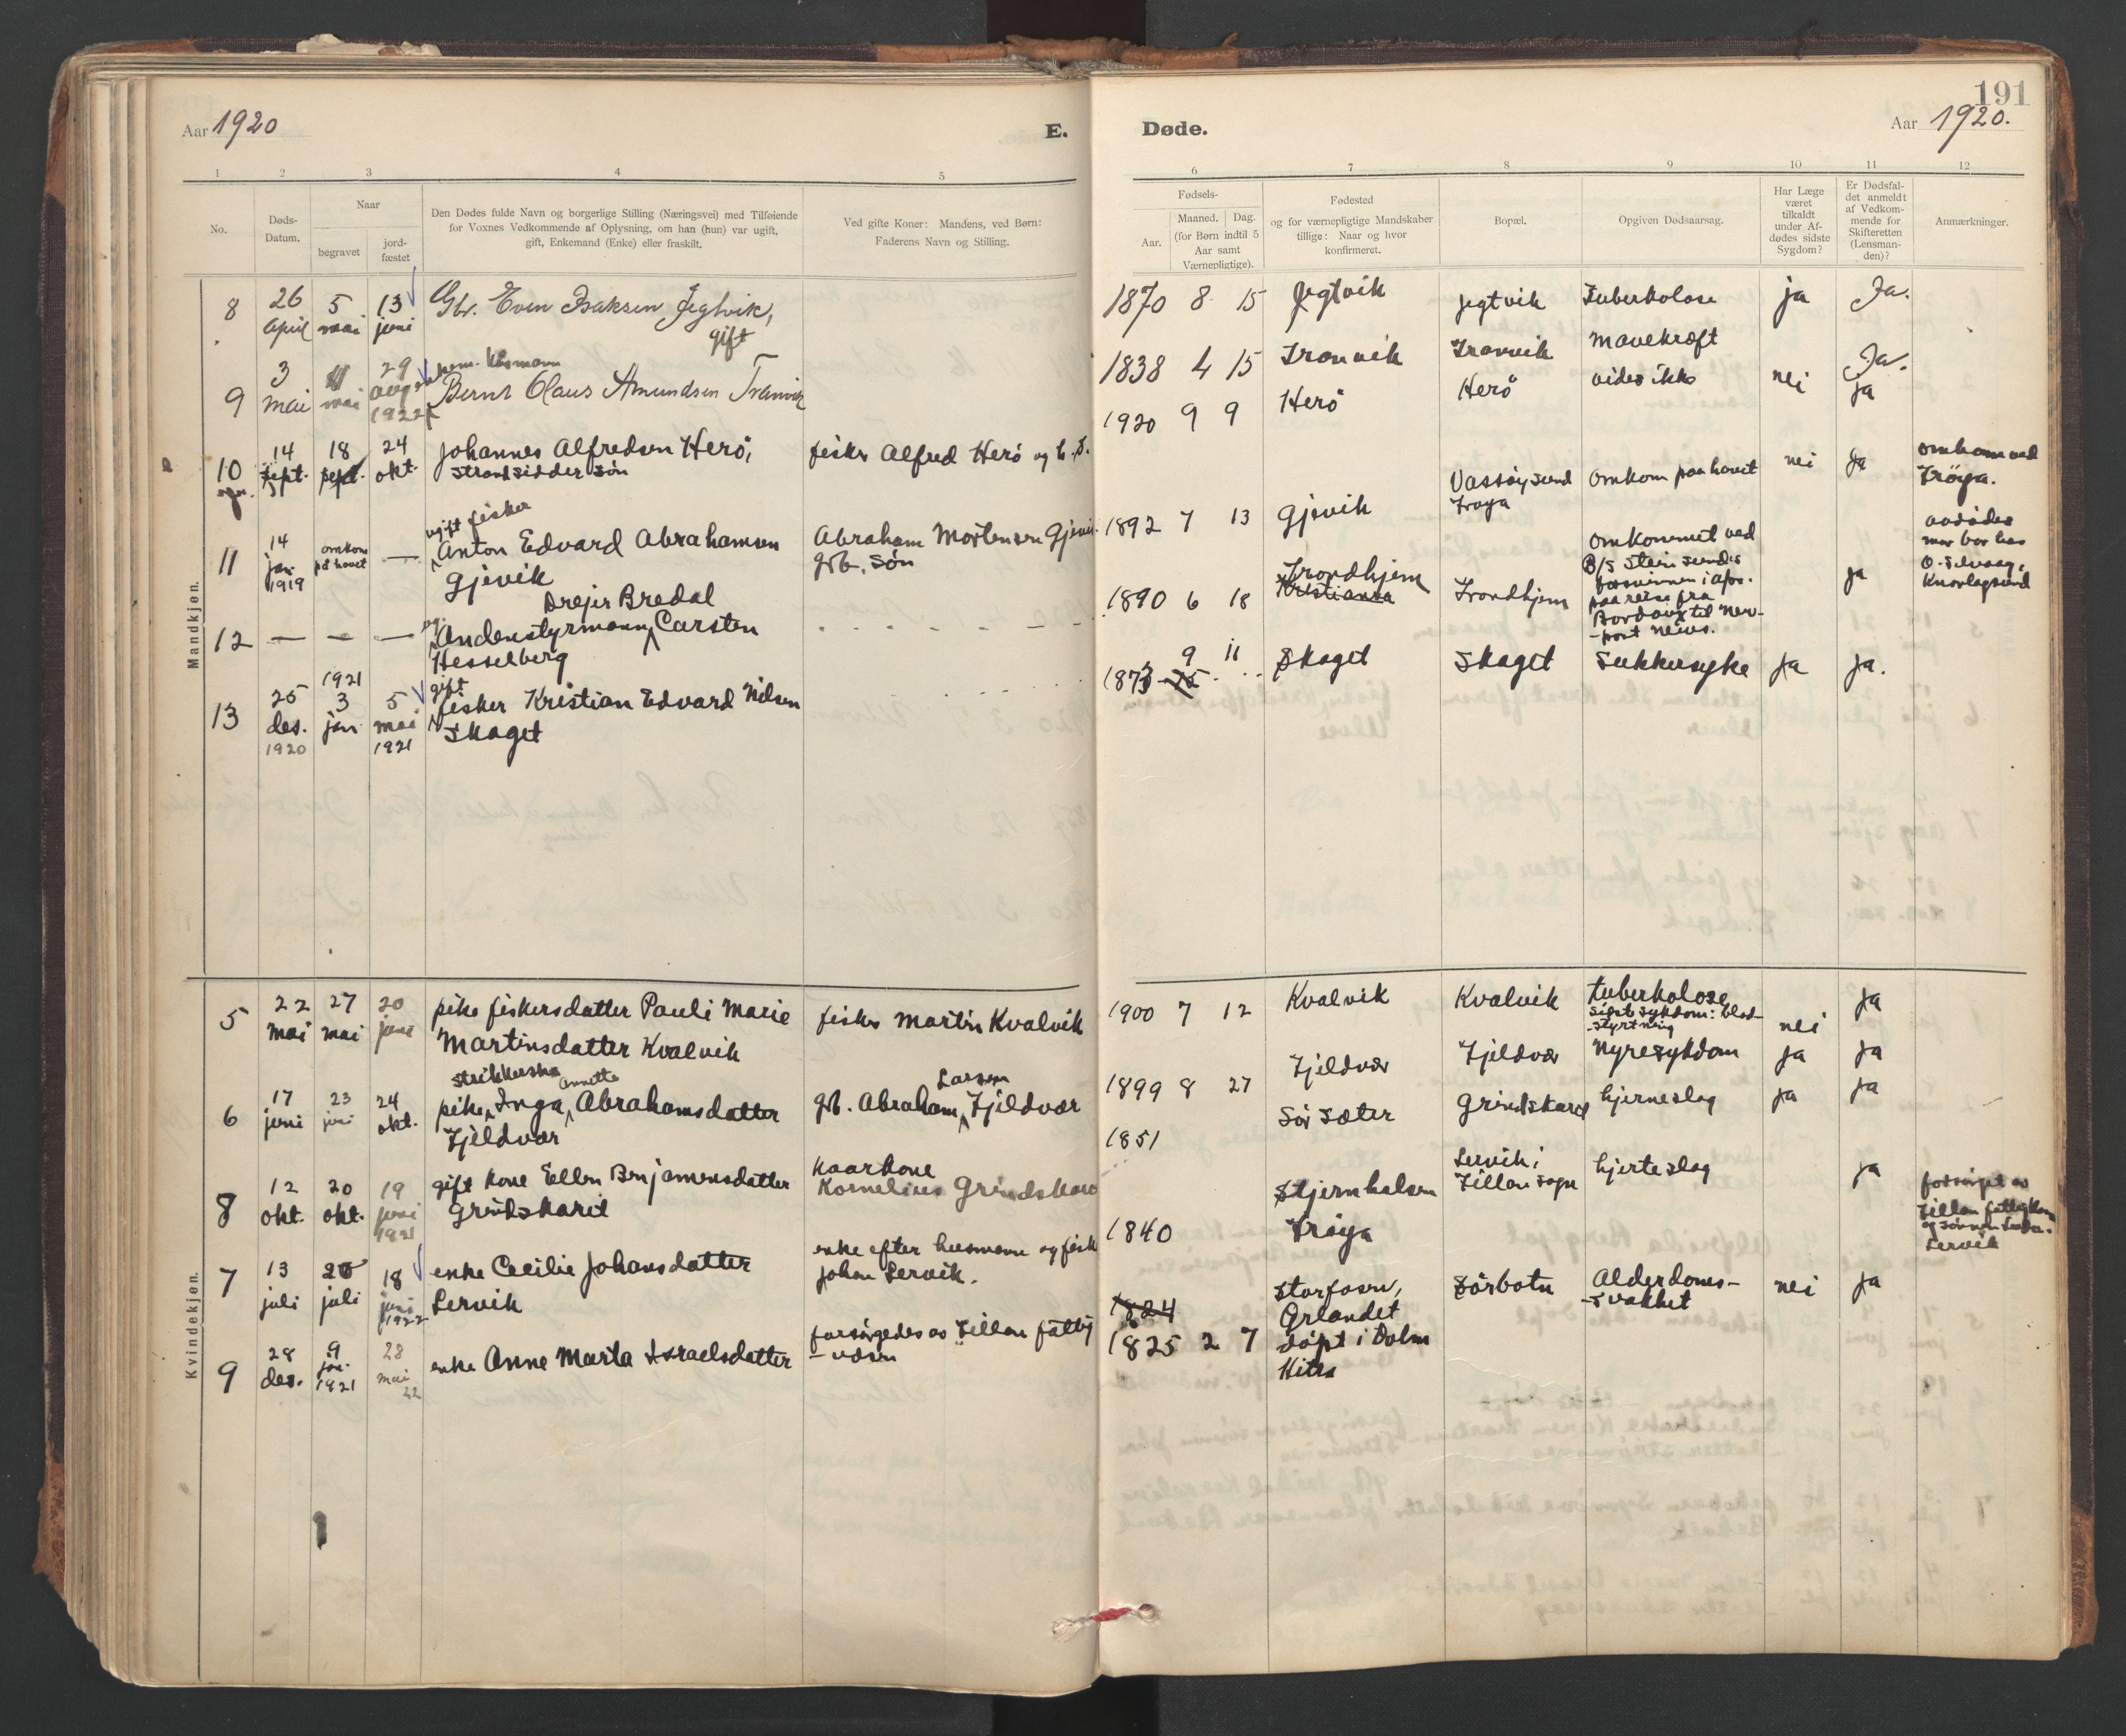 191
Aar 1920
E.
Døde.
Aar 1920.
1 2 3 4 5
6 7 8 9 10 11 12
No.
Døds-
Datum.
Naar
begravet
jord-
fæstet
Den Dødes fulde Navn og borgerlige Stilling (Næringsvei) med Tilføiende
for Voxnes Vedkommende af Oplysning, om han (hun) var ugift,
gift, Enkemand (Enke) eller fraskilt.
Ved gifte Koner: Mandens, ved Børn:
Faderens Navn og Stilling.
Fødsels-
Aar.
Maaned. Dag.
(for Børn indtil 5
Aar samt
Værnepligtige).
Fødested
og for værnepligtige Mandskaber
tillige: Naar og hvor
konfirmeret.
Bopæl.
Opgiven Dødsaarsag.
Har Læge
været
tilkaldt
under Af-
dødes sidste
Sygdom?
Er Dødsfal-
det anmeldt
af Vedkom-
mende for
Skifteretten
(Lensman-
den)?
Anmærkninger.
Mandkjøn.
8
26 april
5 mai
13 juni
Gbr. Even Isaksen Jegtvik,
gift
1870 8 15
Jegtvik
Jegtvik
Tuberkolose
ja
Ja.
9
3 mai
11 mai
29 aug 1922
Bernt Olaus Amundsen Tranvik
1838 4 15
Tranvik
Tranvik
mavekræft
Ja.
10
14 sept.
18 sept.
24 okt.
Johannes Alfredsen Herö,
strandsidder søn
fisker Alfred Herö og h.
1920 9 9
Herö
Herö
vides ikke
nei
ja
11
14 jan. 1919
omkom
på havet
—
ugift fisker
Anton Edvard Abrahamsen
Gjevik
Abraham Mortensen Gjevik
gb. søn
1892 7 13
Gjevik
Vassøysund
Frøya
omkom paa havet
nei
ja
omkom ved
Fröya.
12
— — —
ug.
Drejer Bredal
Andenstyrmann Carsten
Hesselberg
1890 6 18
Trondhjem
Kristiania
Trondhjem
omkommet ved
D/S Steinsunds
forsvinnen i
paa reise fra
Bordaux til New-
-port News.
ja
Knarlagsund
13
25 des. 1920
1921
3 jan
5 mai 1921
gift
fisker Kristian Edvard Nilsen
Skaget
1873 9 11
Skaget
Skaget
Sukkersyke
ja
ja.
Kvindekjøn.
5
22 mai
27 mai
20 juni
pike fiskersdatter Pauli Marie
Martinsdatter Kvalvik
fisker Martin Kvalvik
1900 7 12
Kvalvik
Kvalvik
tuberkolose
sidste sykdom: blod-
-styrtning
nei
ja
6
17 juni
23 juni
24 okt.
strikkerske
Annette
pike Inga Abrahamsdatter
Fjeldvær
Larsen
gb. Abraham Fjeldvær
1899 8 27
Fjeldvær
Fjeldvær
Nyresykdom
ja
ja
8
12 okt.
20 okt.
19 juni 1921
gift kone Ellen Benjamensdatter
Grindskaret
Kaarkone
Kornelius Grindskare
1851
Sör Sæter
Grindskaret
hjerneslag
ja
ja
7
13 juli
20 juli
18 juni 1922
enke Cecilie Johansdatter
Lervik
enke efter husmann og fisk
Johan Lervik.
1840
Stjernholsen
Fröya
Lervik i
Fillan sogn
hjerteslag
ja
forsørget av
Fillan
Lervik
9
28 des.
9 jan. 1921
28 mai 22
enke Anne Marta Israelsdatter
forsörgedes av Fillan fattig
-væsen
1824
1825 2 7
Storfosen,
Ørlandet
döpt i Dolm
Hitra
Sörbotn
Alderdoms-
-svakhet
nei
ja